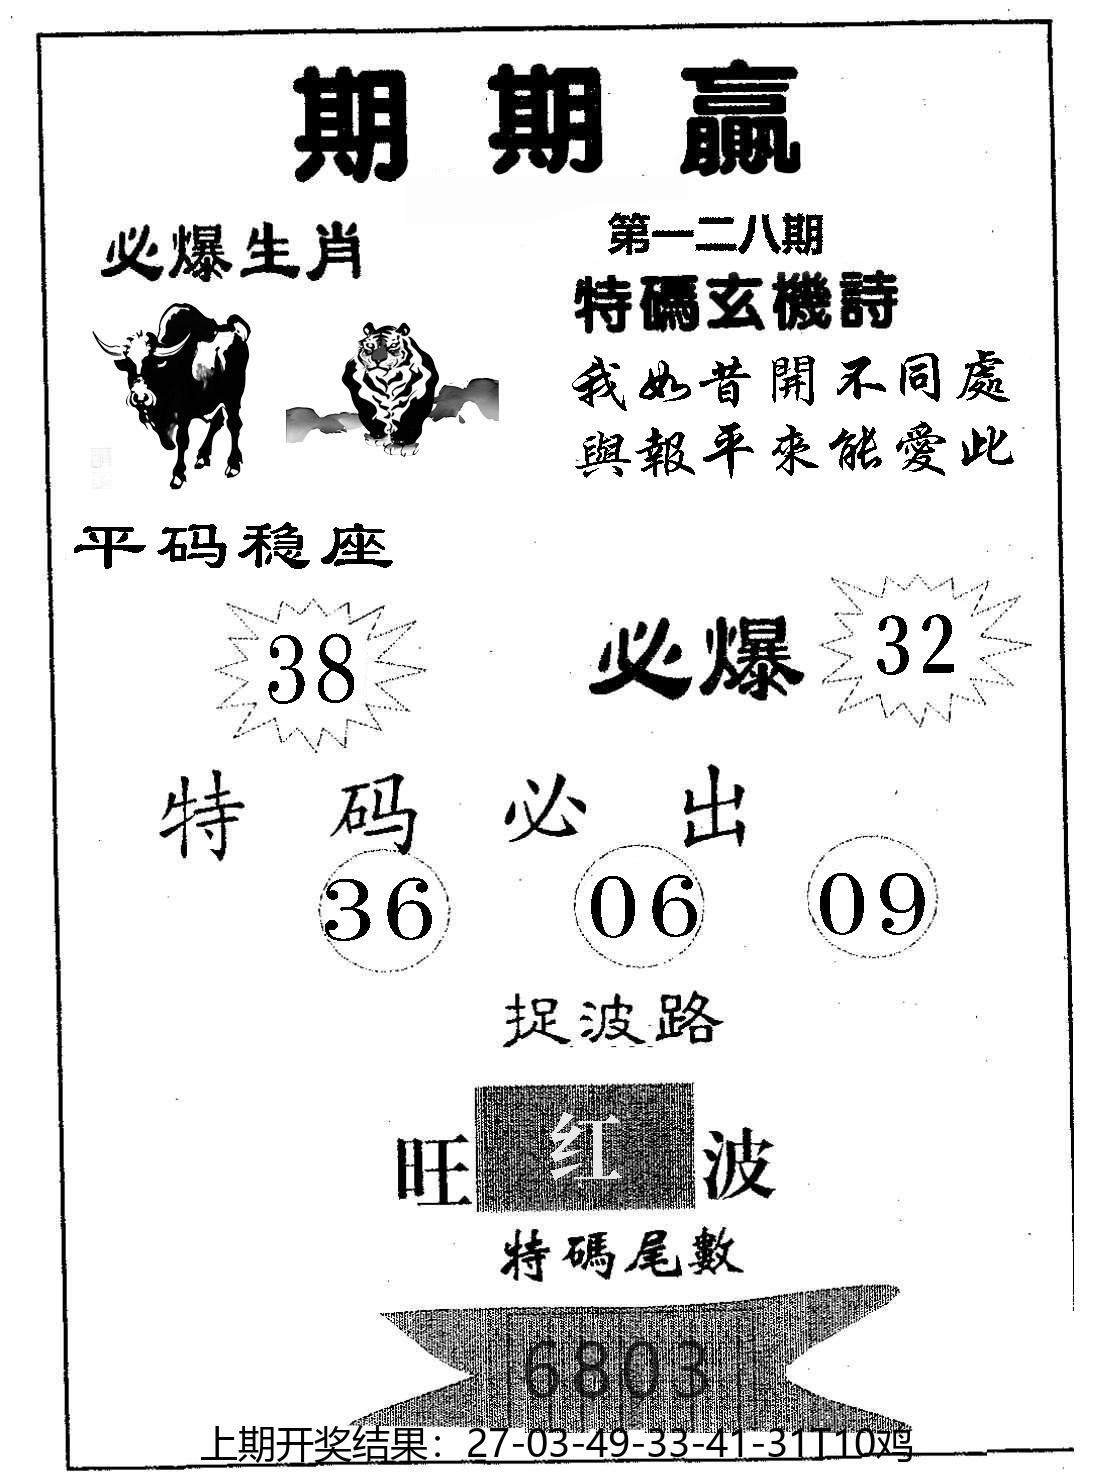 期期贏
必爆生肖
第一二八期
特碼玄機詩
我如昔開不同處
與報平來能愛此
平码稳座
38
必爆 32
特码必出
36 06 09
捉波路
旺 红 波
特碼尾數
6803
上期开奖结果：27-03-49-33-41-31T10鸡